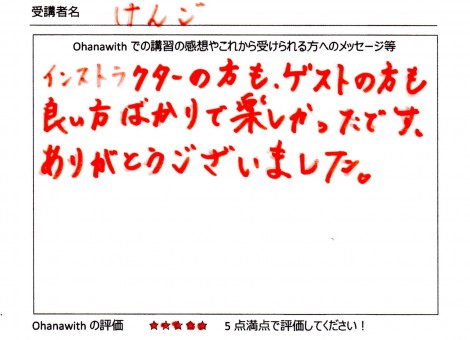 受講者名 けんご
Ohanawith での講習の感想やこれから受けられる方へのメッセージ等
インストラクターの方も、ゲストの方も
良い方ばかりで楽しかったです、
ありがとうございました。
Ohanawith の評価 ★★★★★ 5 点満点で評価してください！